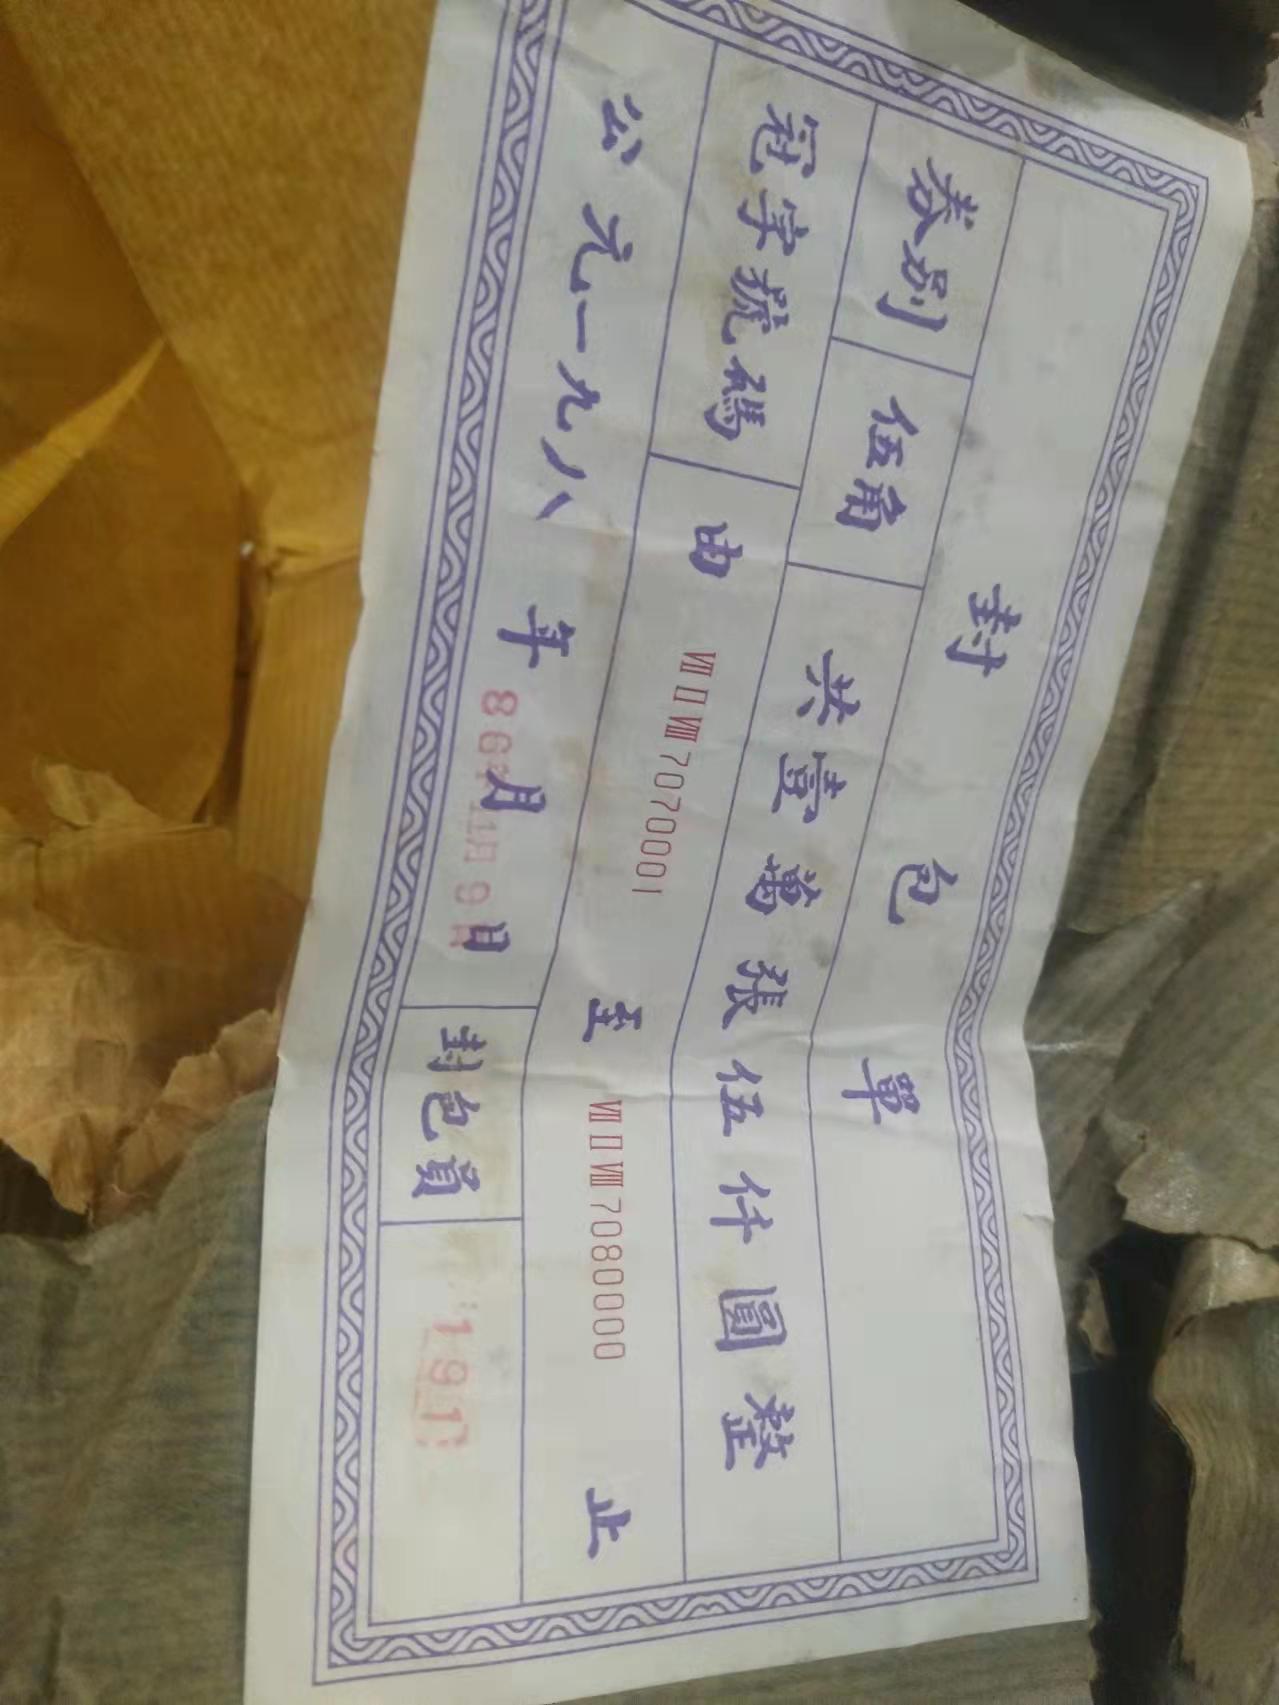 封包單
券別 伍角 共壹萬張伍仟圓整
冠字號碼 由 ⅦⅡⅧ7070001 至 ⅦⅡⅧ7080000 止
公元一九八 年 月 日 封包員
86年1月9日
191